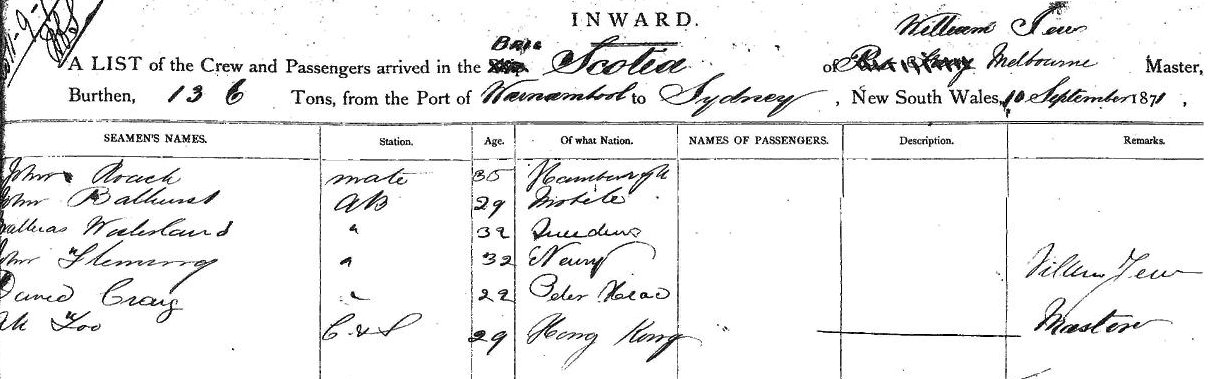 INWARD.
William Tew
A LIST of the Crew and Passengers arrived in the Brig Scotia of Melbourne Master,
Burthen, 136 Tons, from the Port of Warnambool to Sydney, New South Wales, 10 September 1871,
SEAMEN'S NAMES. Station. Age. Of what Nation. NAMES OF PASSENGERS. Description. Remarks.
John Roach mate 35 Hamburgh
John Bathurst AB 29 Mobile
Waterland " 32
John Fleming " 32 Newry
David Craig " 22 Peter Head
William Tew
Ah Foo C & S 29 Hong Kong Master